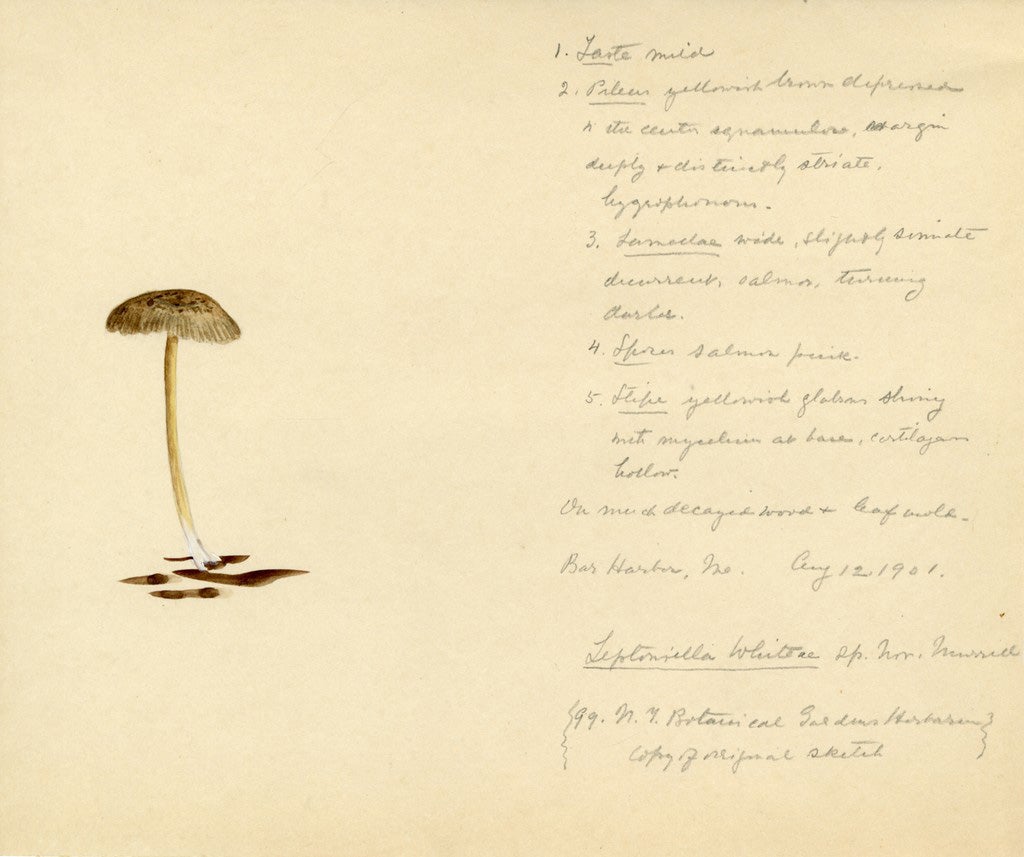 1. Taste mild
2. Pileus yellowish brown depressed
in the center squamulose, margin
deeply + distinctly striate,
hygrophonous.
3. Lamellae wide, slightly sinuate
decurrent, salmon, turning
darker.
4. Spores salmon pink.
5. Stipe yellowish glabrous shiny
with mycelium at base, cartilagenous
hollow.
On much decayed wood + leaf mold.
Bar Harbor, Me. Aug 12 1901.
Leptoniella Whiteae sp. Nov. Murrill
{99. N. Y. Botanical Gardens Herbarium}
Copy of original sketch